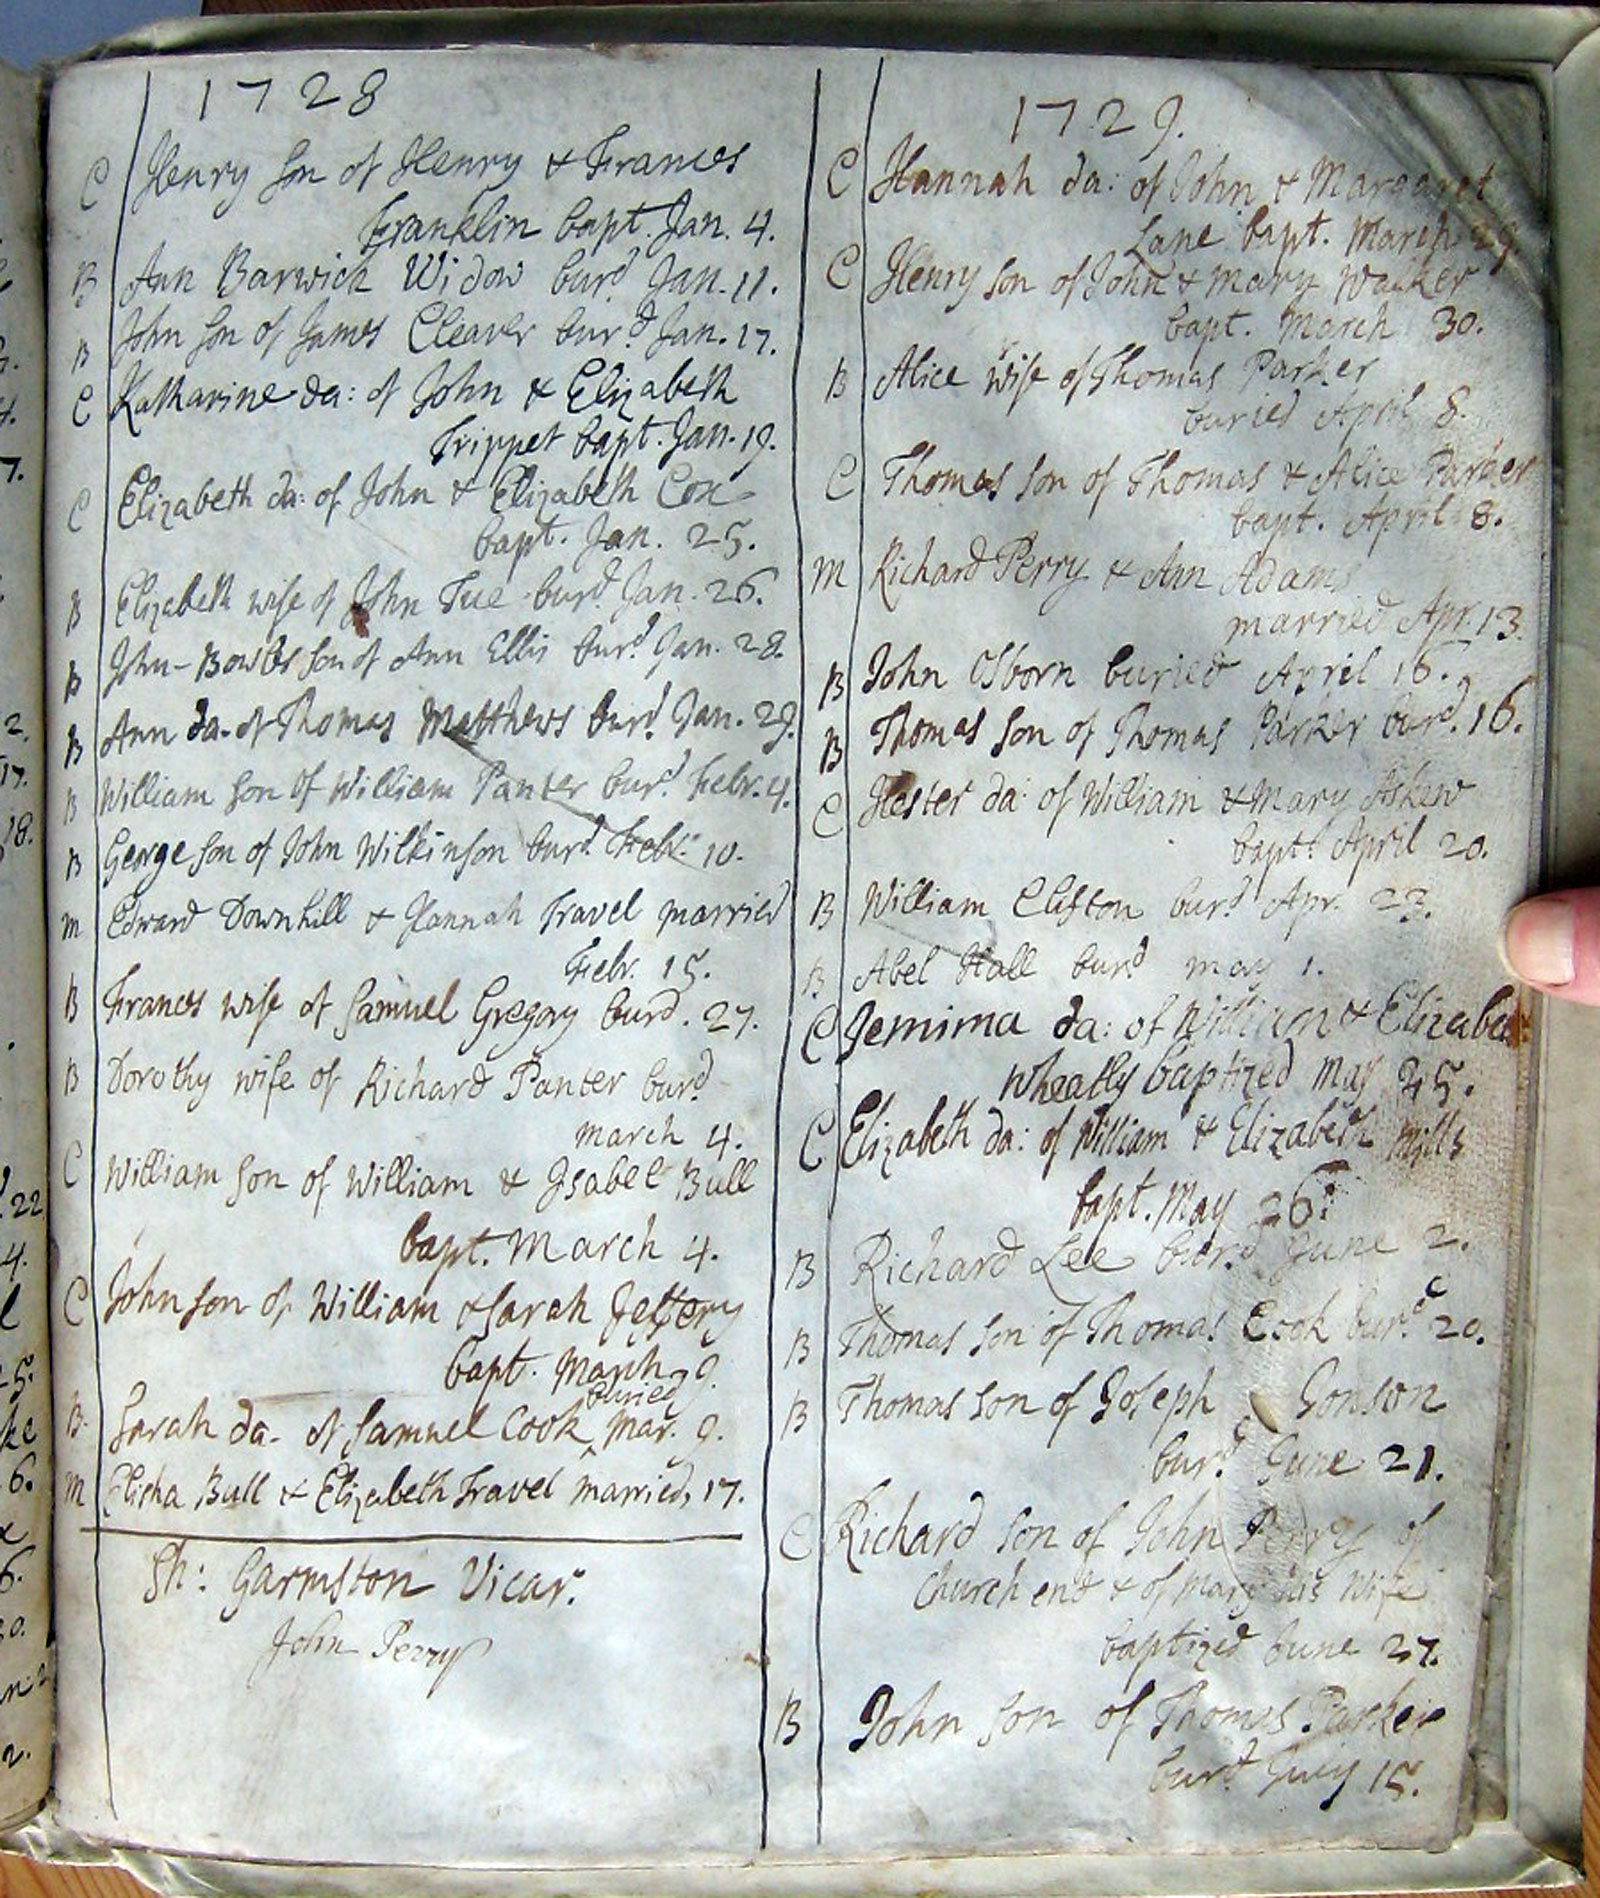 1728
C Henry son of Henry & Frances
Franklin bapt. Jan. 4.
B Ann Barwick Widow burd. Jan. 11.
B John son of James Cleaver burd. Jan. 17.
C Katharine da: of John & Elizabeth
Trippet bapt. Jan. 19.
C Elizabeth da: of John & Elizabeth Cox
bapt. Jan. 25.
B Elizabeth wife of John Tue burd. Jan. 26.
B John-Bowles son of Ann Ellis burd. Jan. 28.
B Ann da. of Thomas Matthews burd. Jan. 29.
B William son of William Panter burd. Febr. 4.
B George son of John Wilkinson burd. Febr. 10.
M Edward Downhill & Hannah Travel married
Febr. 15.
B Frances wife of Samuel Gregory burd. 27.
B Dorothy wife of Richard Panter burd
march 4.
C William son of William & Isabel Bull
bapt. March 4.
C John son of William & Sarah Jeffery
bapt. March 9.
buried
B. Sarah da. of Samuel Cook ^ Mar. 9.
M Elisha Bull & Elizabeth Travel married, 17.
Sh: Garmston Vicar.
John Perry
1729.
C Hannah da: of John & Margaret
Lane bapt. March 29.
C Henry son of John & Mary Walker
bapt. March 30.
B Alice wife of Thomas Parker
buried April 8.
C Thomas son of Thomas & Alice Parker
bapt. April 8.
M Richard Perry & Ann Adams
married Apr. 13.
B John Osborn buried April 16.
B Thomas son of Thomas Parker burd. 16.
C Hester da: of William & Mary Askew
bapt: April 20.
B William Clifton burd. Apr. 23.
B Abel Hall burd may 1.
C Jemima da: of William & Elizabe
Wheatly baptized May 25.
C Elizabeth da: of William & Elizabeth Mills
bapt. May 26.
B Richard Lee burd. June 2.
B Thomas son of Thomas Cook burd. 20.
B Thomas son of Joseph Jonson
burd. June 21.
C Richard son of John Perry of
Church end & of Mary his wife
baptized June 27.
B John son of Thomas Parker
burd July 15.